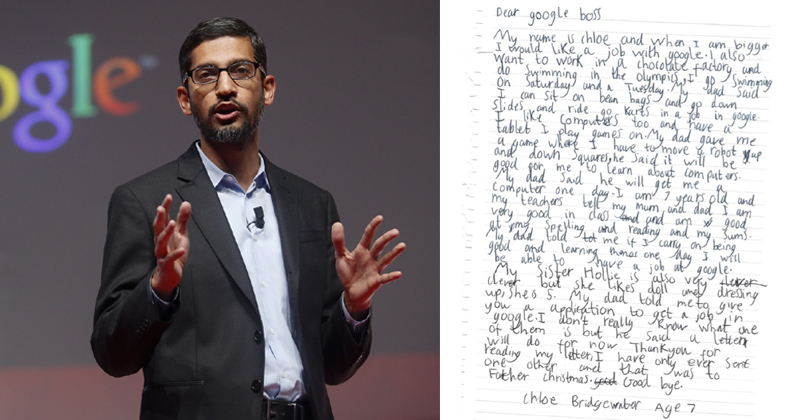 ogle™
Dear google boss
My name is chloe and when I am bigger
I would like a job with google. I also
want to work in a chocolate factory and
do swimming in the olympics. I go swimming
on Saturday and a Tuesday. My dad said
I can sit on bean bags and go down
slides and ride go karts in a job in google.
I like computers too and have a
tablet I play games on. My dad gave me
a game where I have to move a robot up
and down squares, he said it will be
good for me to learn about computers.
My dad said he will get me a
computer one day. I am 7 years old and
my teachers tell my mum and dad I am
very good in class and am good
at my spelling and reading and my sums.
My dad told me if I carry on being
good and learning than one day I will
be able to have a job at google.
My sister Hollie is also very
clever but she likes doll and dressing
up, she is 5. My dad told me to give
you a application to get a job in
google. I don't really know what one
of them is but he said a letter
will do for now Thankyou for
reading my letter, I have only ever sent
one other and that was to
Father christmas. Good bye.
Chloe Bridgewater Age 7